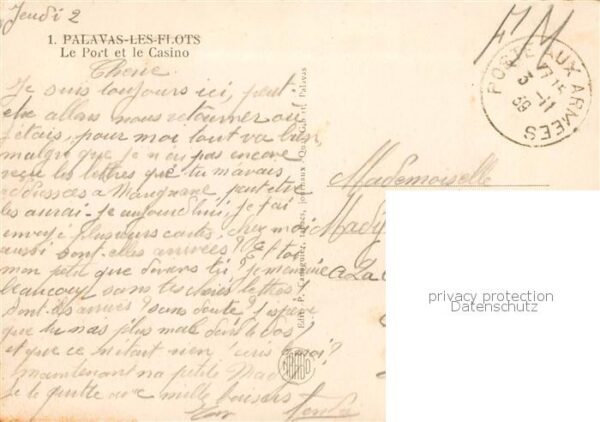 Jeudi 2
1. PALAVAS-LES-FLOTS
Le Port et le Casino
Je suis toujours ici, peut
etre allons nous retourner ou
j'étais, pour moi tout va bien
malgré que je n'ai pas encore
reçu les lettres que tu m'avais
adressées a Marignane peut etre
les aurai-je aujourd'hui, je t'ai
envoyé plusieurs cartes chez moi
aussi sont-elles arrivées? Et toi
mon petit que deviens tu? je m'ennuie
beaucoup sans tes chères lettres!
sont-ils arrivés? sans doute? j'espère
que tu n'as plus mal dans le dos?
et que ce n'était rien, ecris moi?
maintenant ma petite
je te quitte avec mille baisers
Ton
FM
POSTE AUX ARMEES
17 15
3 -11
39
Edit. P. Palavas
Mademoiselle
A La
privacy protection
Datenschutz